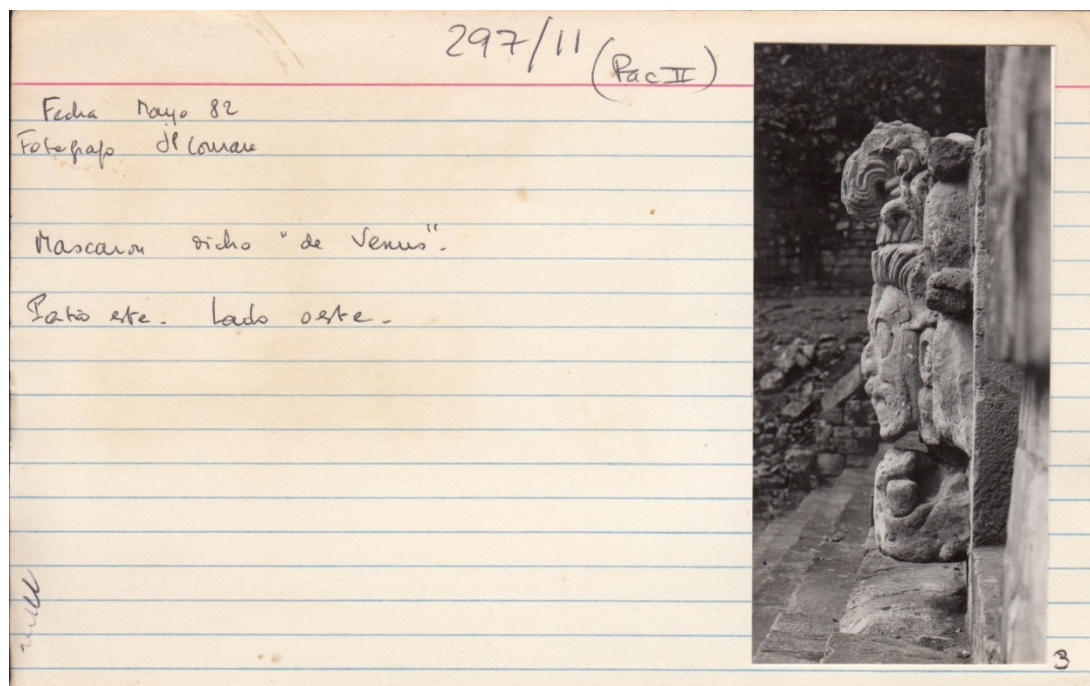 297/11 (Pac II)
Fecha Mayo 82
Fotografo
Mascaron dicho "de Venus".
Patio este. Lado oeste.
3